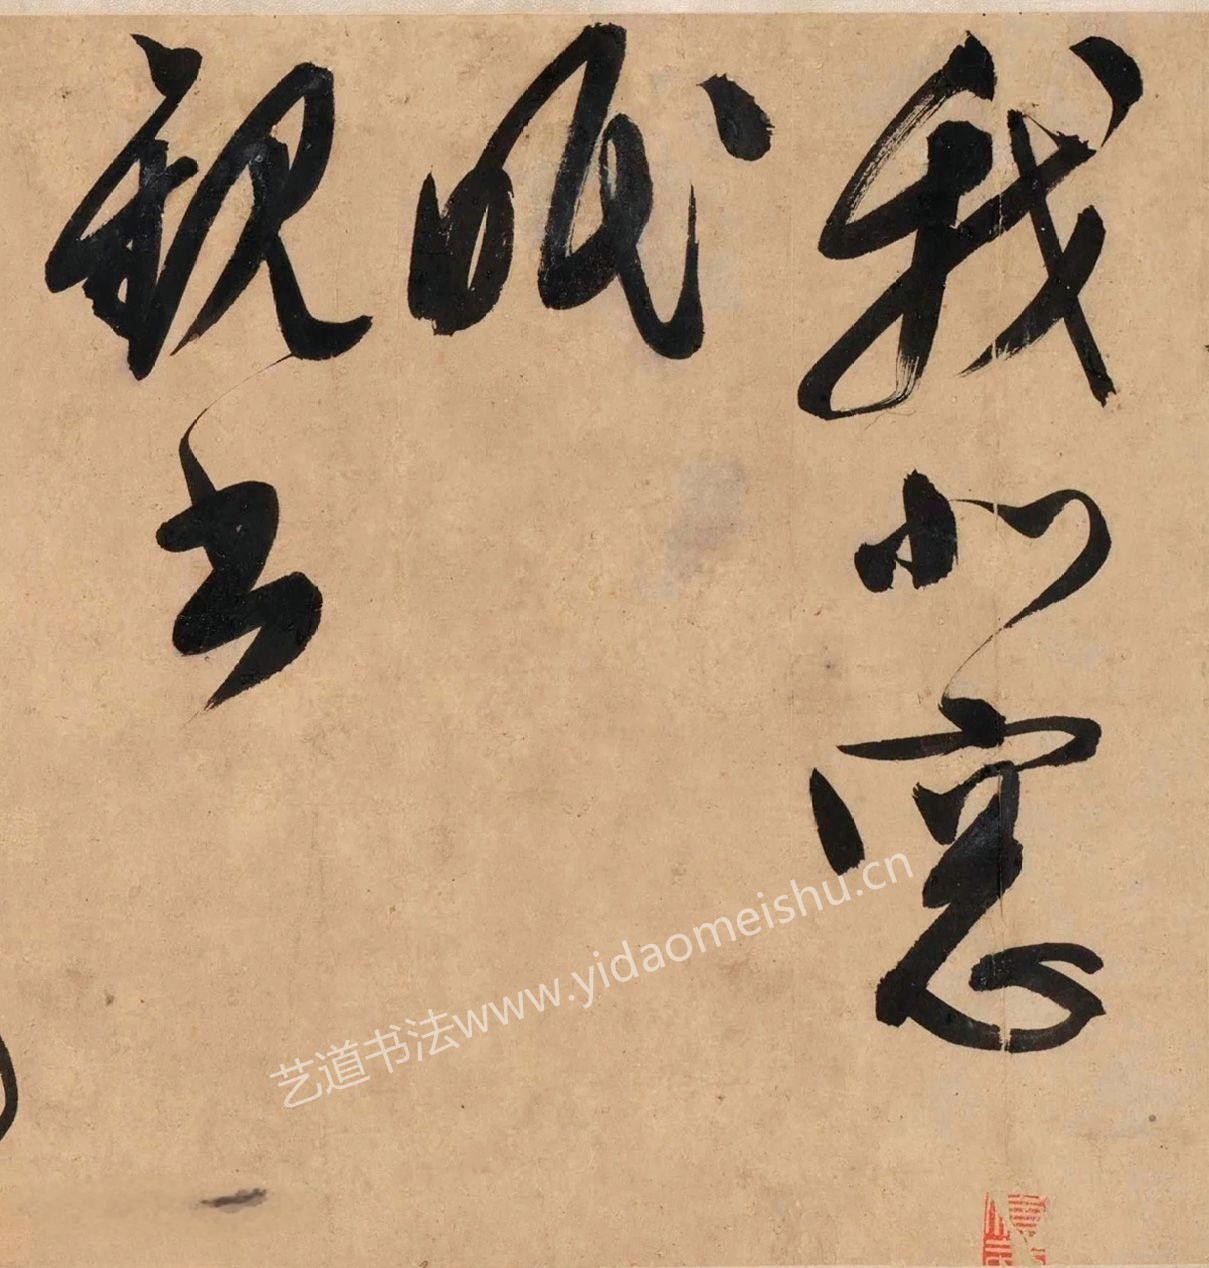 我北窓
眠
親書
艺道书法www.yidaomeishu.cn